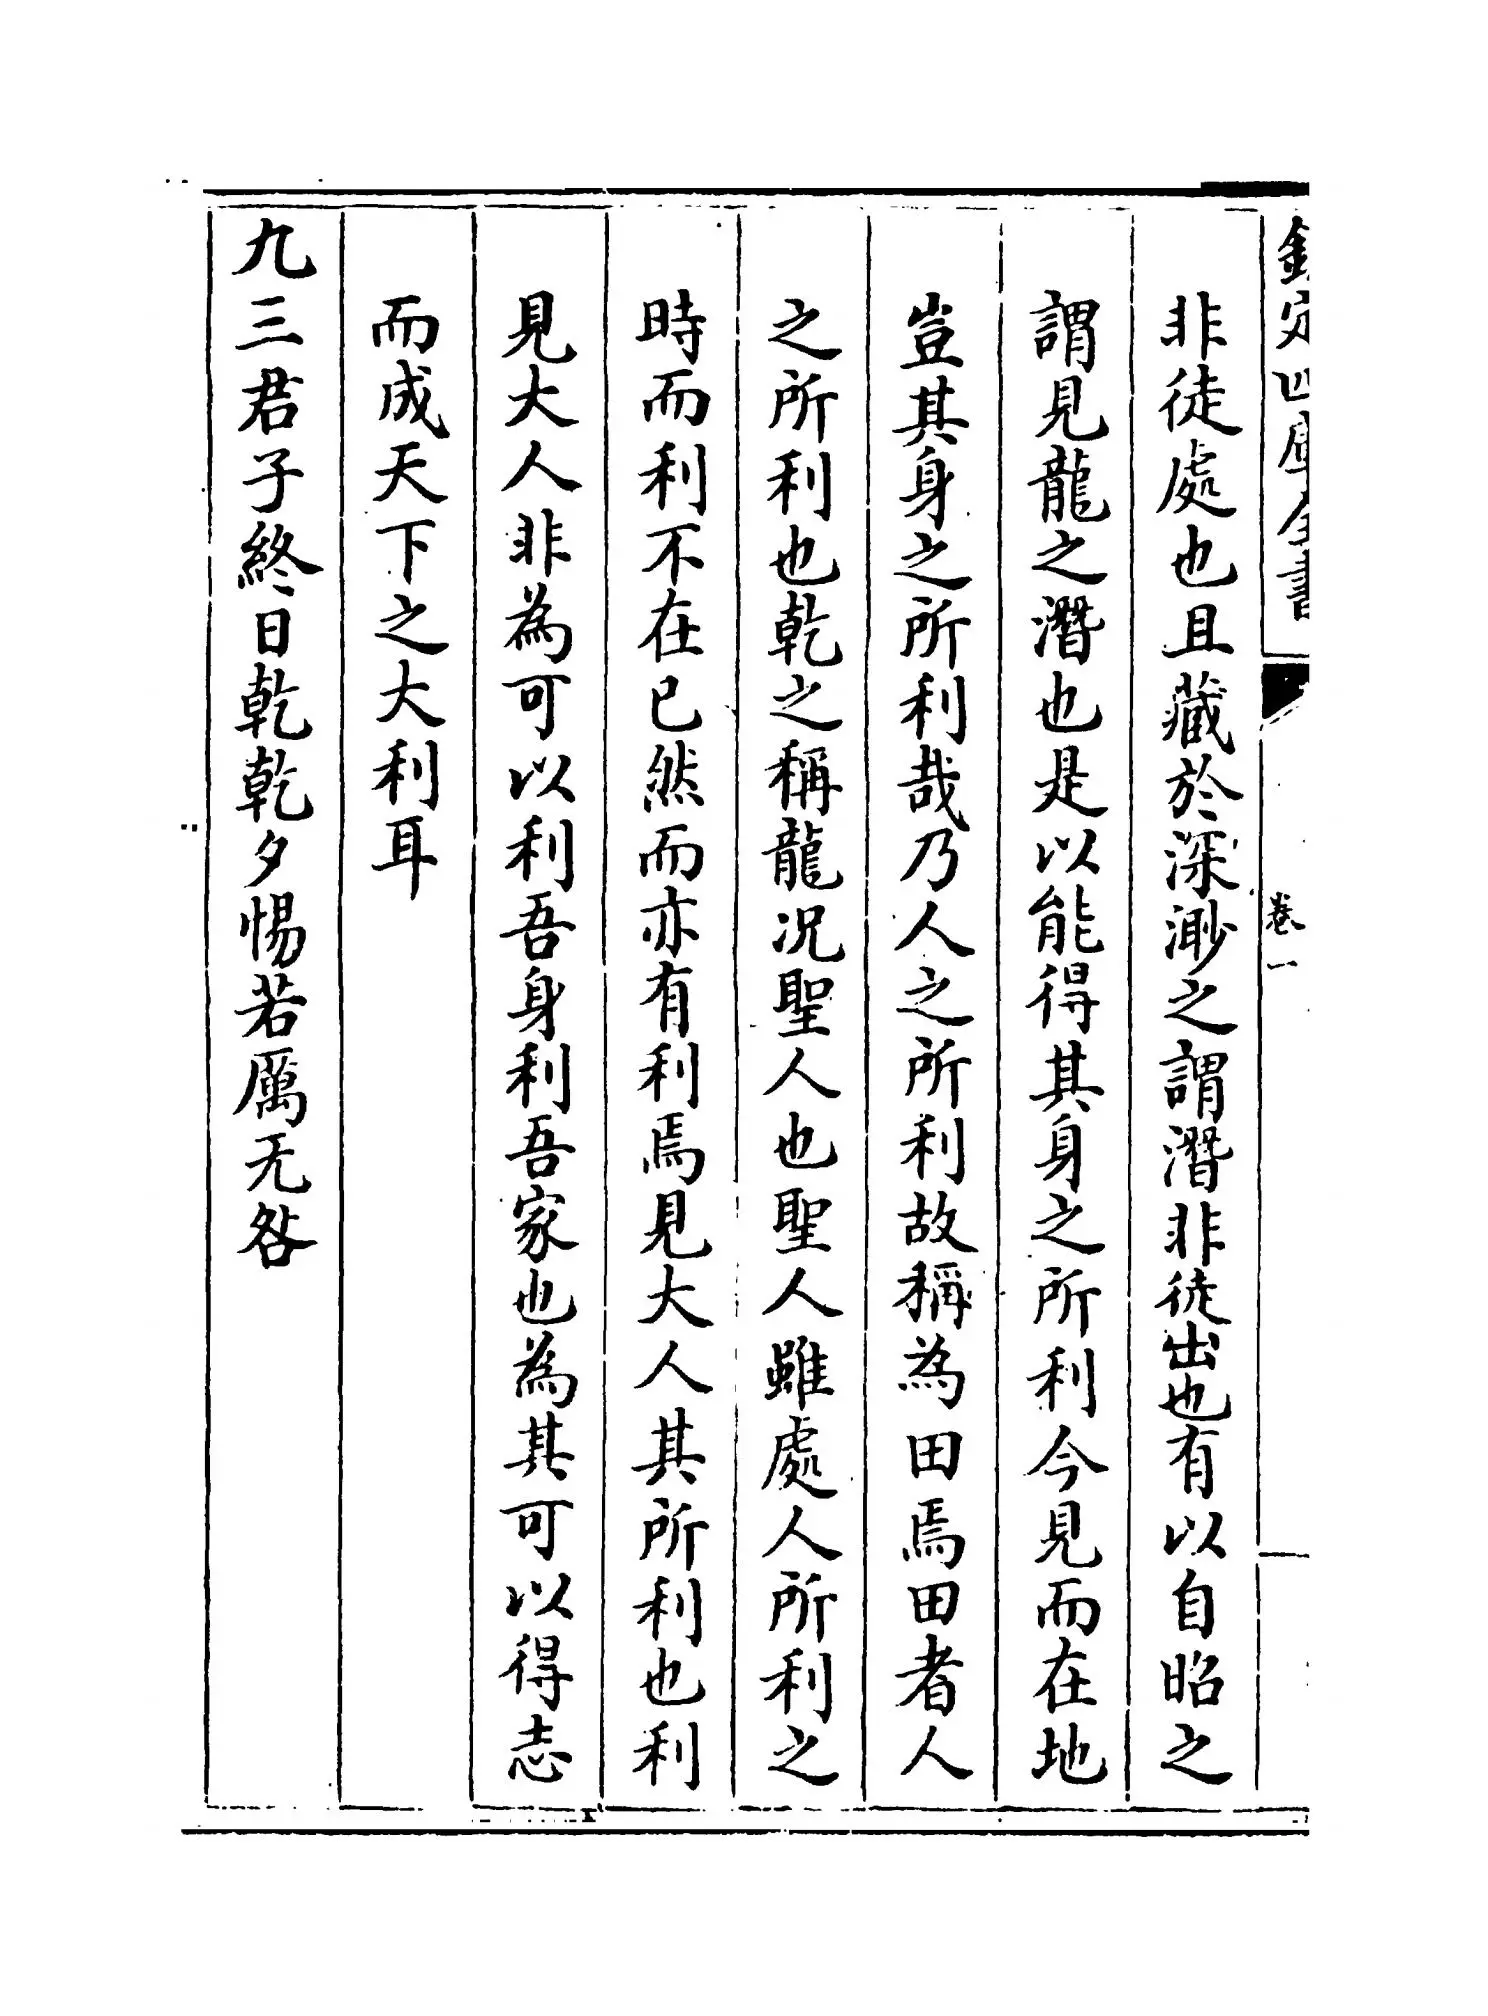 欽定四庫全書
卷一
非徒處也且藏於深渺之謂潛非徒出也有以自昭之
謂見龍之潛也是以能得其身之所利今見而在地
豈其身之所利哉乃人之所利故稱為田焉田者人
之所利也乾之稱龍況聖人也聖人雖處人所利之
時而利不在已然而亦有利焉見大人其所利也利
見大人非為可以利吾身利吾家也為其可以得志
而成天下之大利耳
九三君子終日乾乾夕惕若厲无咎